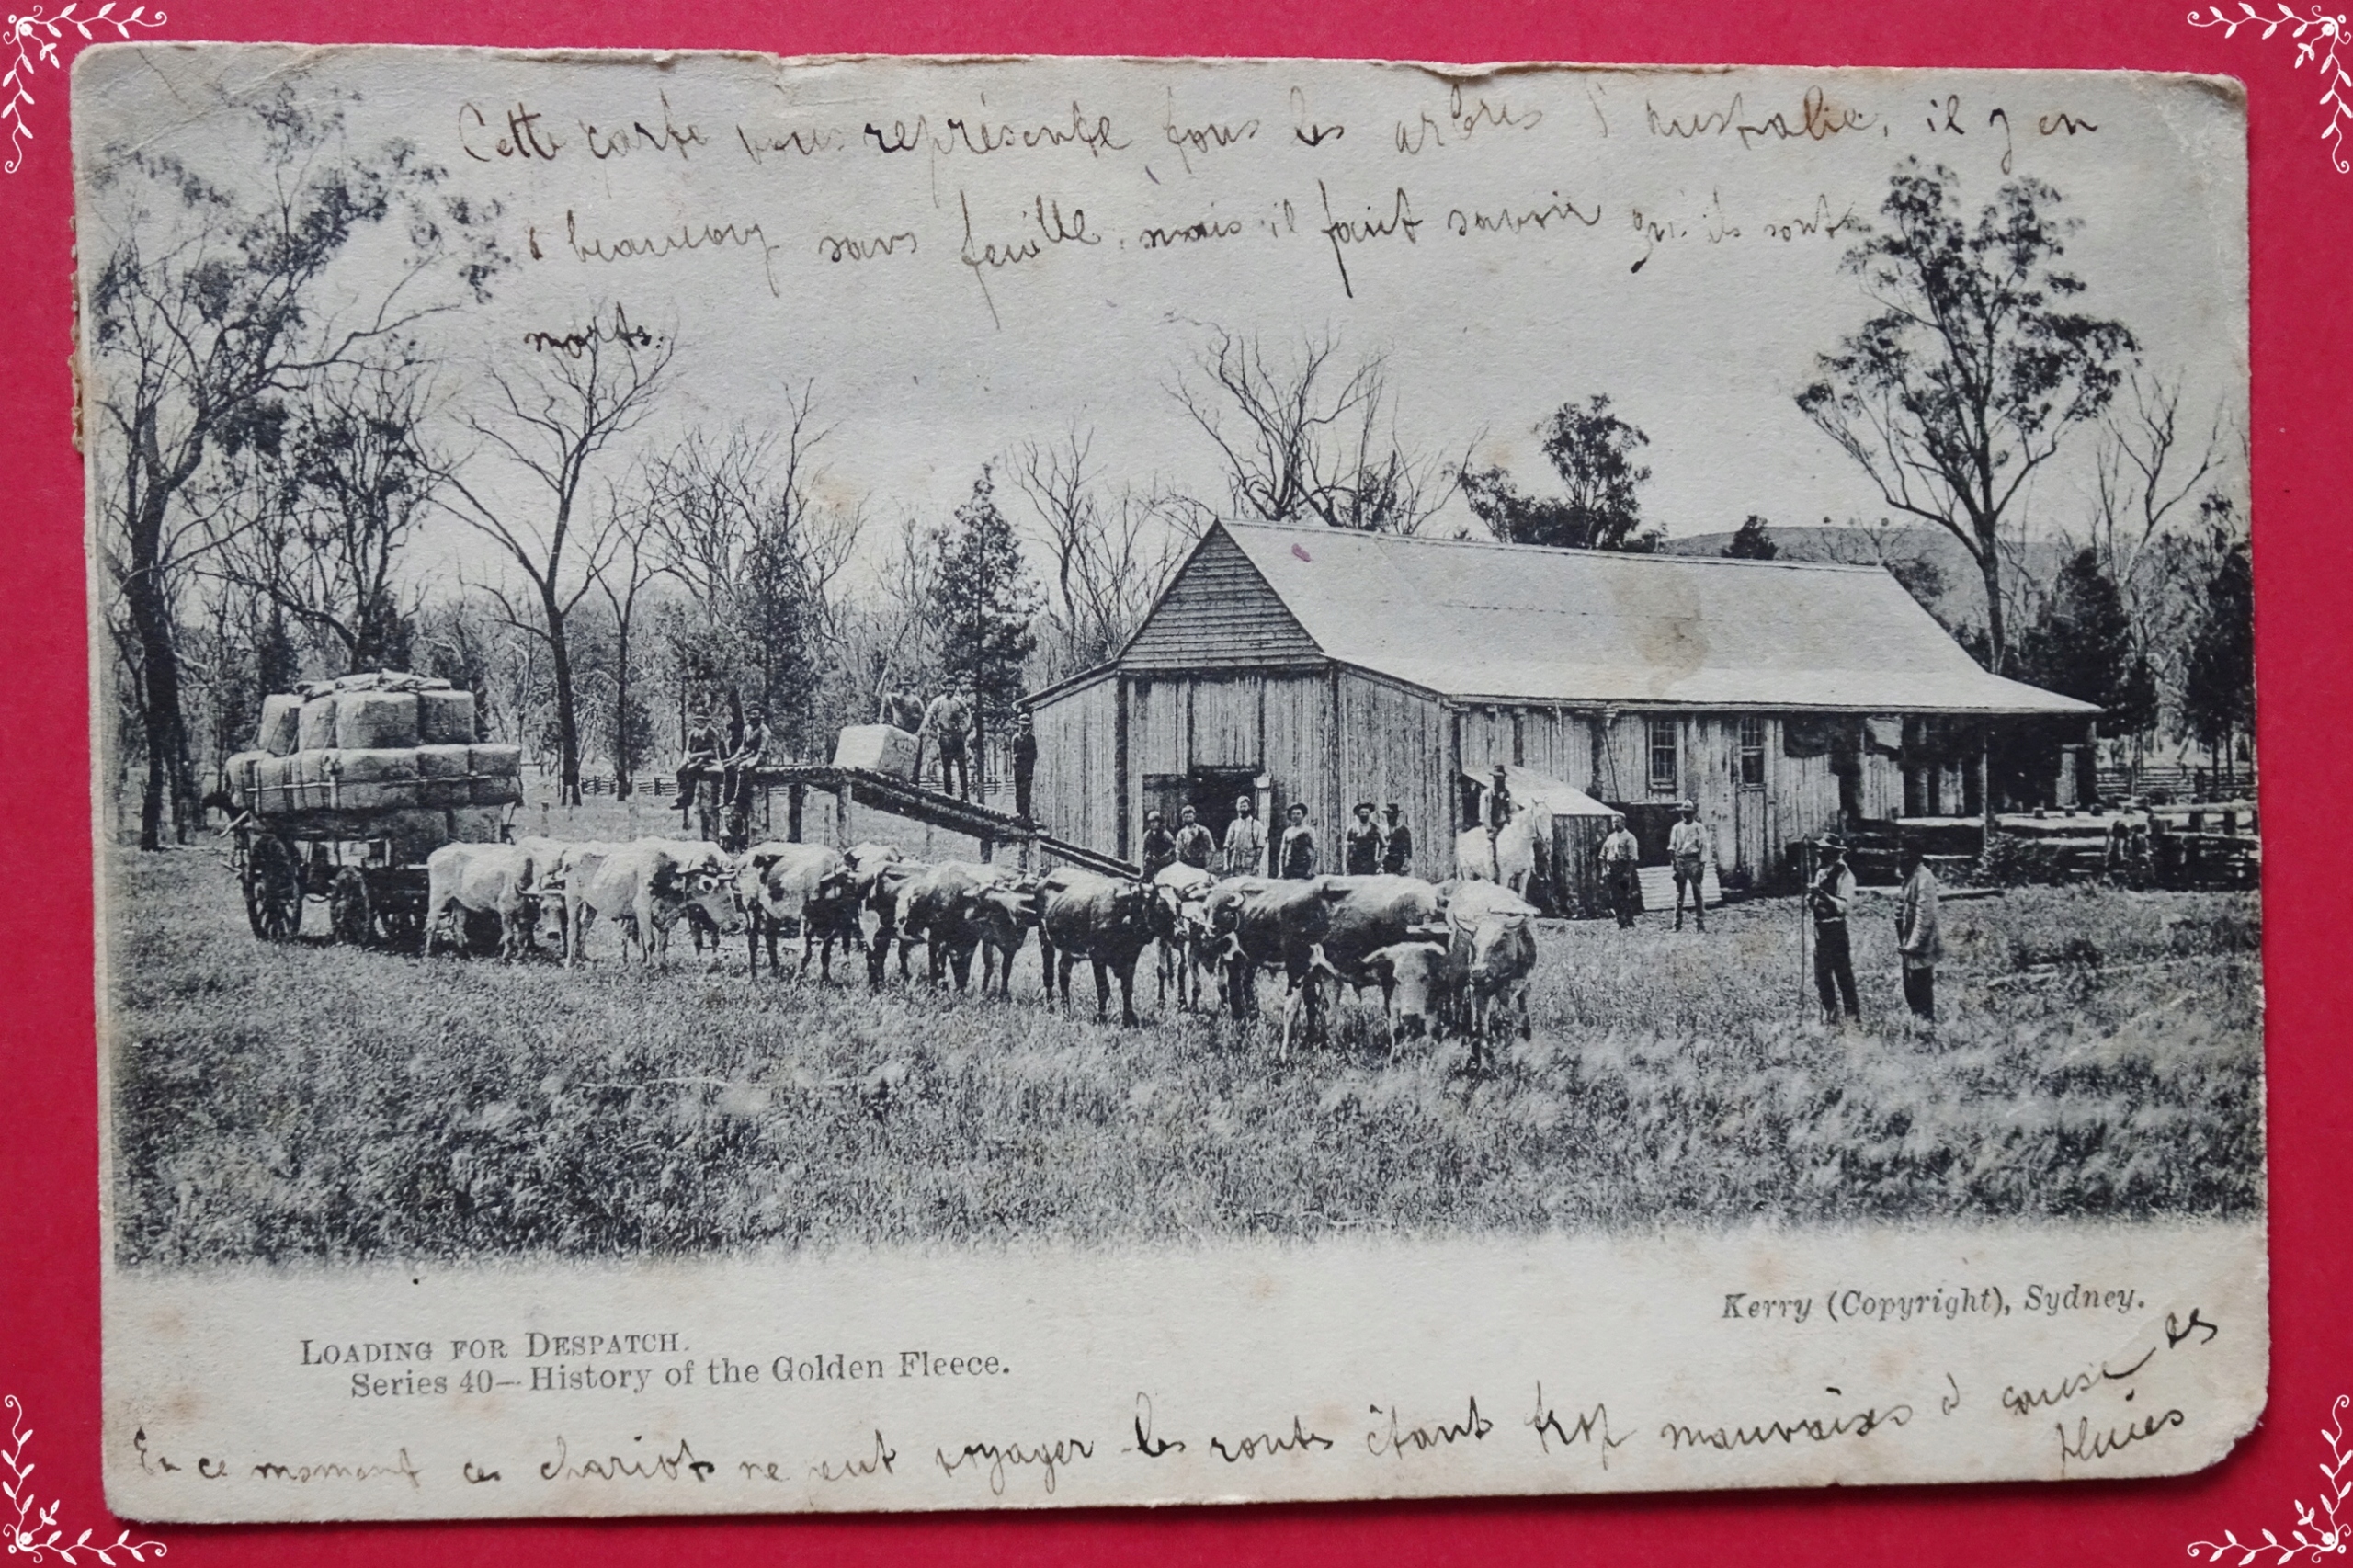 Cette carte vous représente tous les arbres d'Australie, il y en
a beaucoup sans feuille, mais il faut savoir qu'ils sont
morts.
Kerry (Copyright), Sydney.
LOADING FOR DESPATCH.
Series 40—History of the Golden Fleece.
En ce moment ces chariots ne peut voyager les routes étant trop mauvaises à cause des
pluies